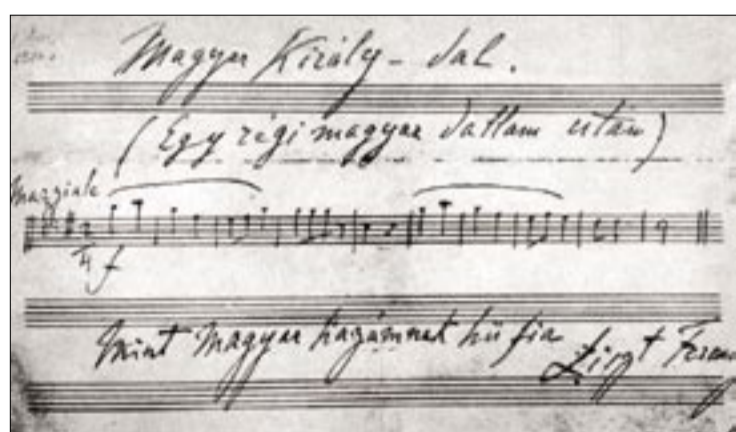 Magyar Király-dal.
(Egy régi magyar dallam után)
Marziale
f
Mint magyar hazámnak hű fia
Liszt Ferenc